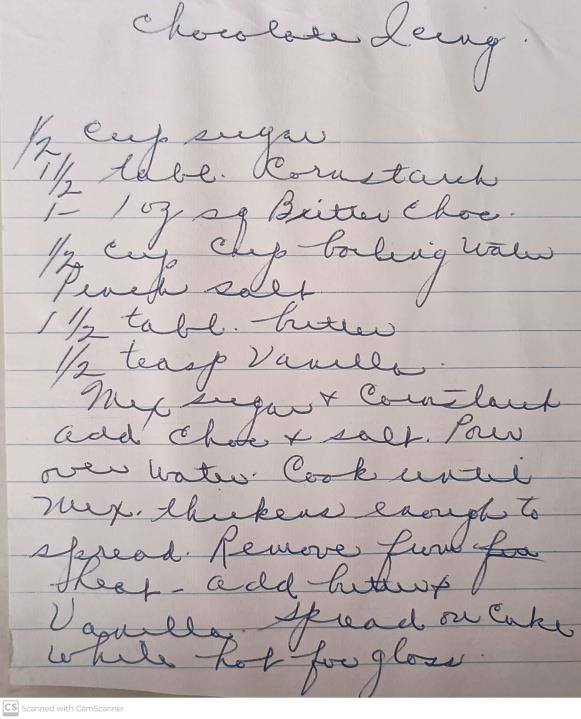 Chocolate Icing.
1/2 cup sugar
1 1/2 table. Cornstarch
1- 1 oz sq Bitter choc.
1/2 cup boiling water
Pinch salt
1 1/2 tabl. butter
1/2 teasp Vanilla.
Mix sugar + Cornstarch
add choc + salt. Pour
over water. Cook until
mix. thickens enough to
spread. Remove from
heat - add butter +
Vanilla. Spread on Cake
while hot for gloss.
CS Scanned with CamScanner